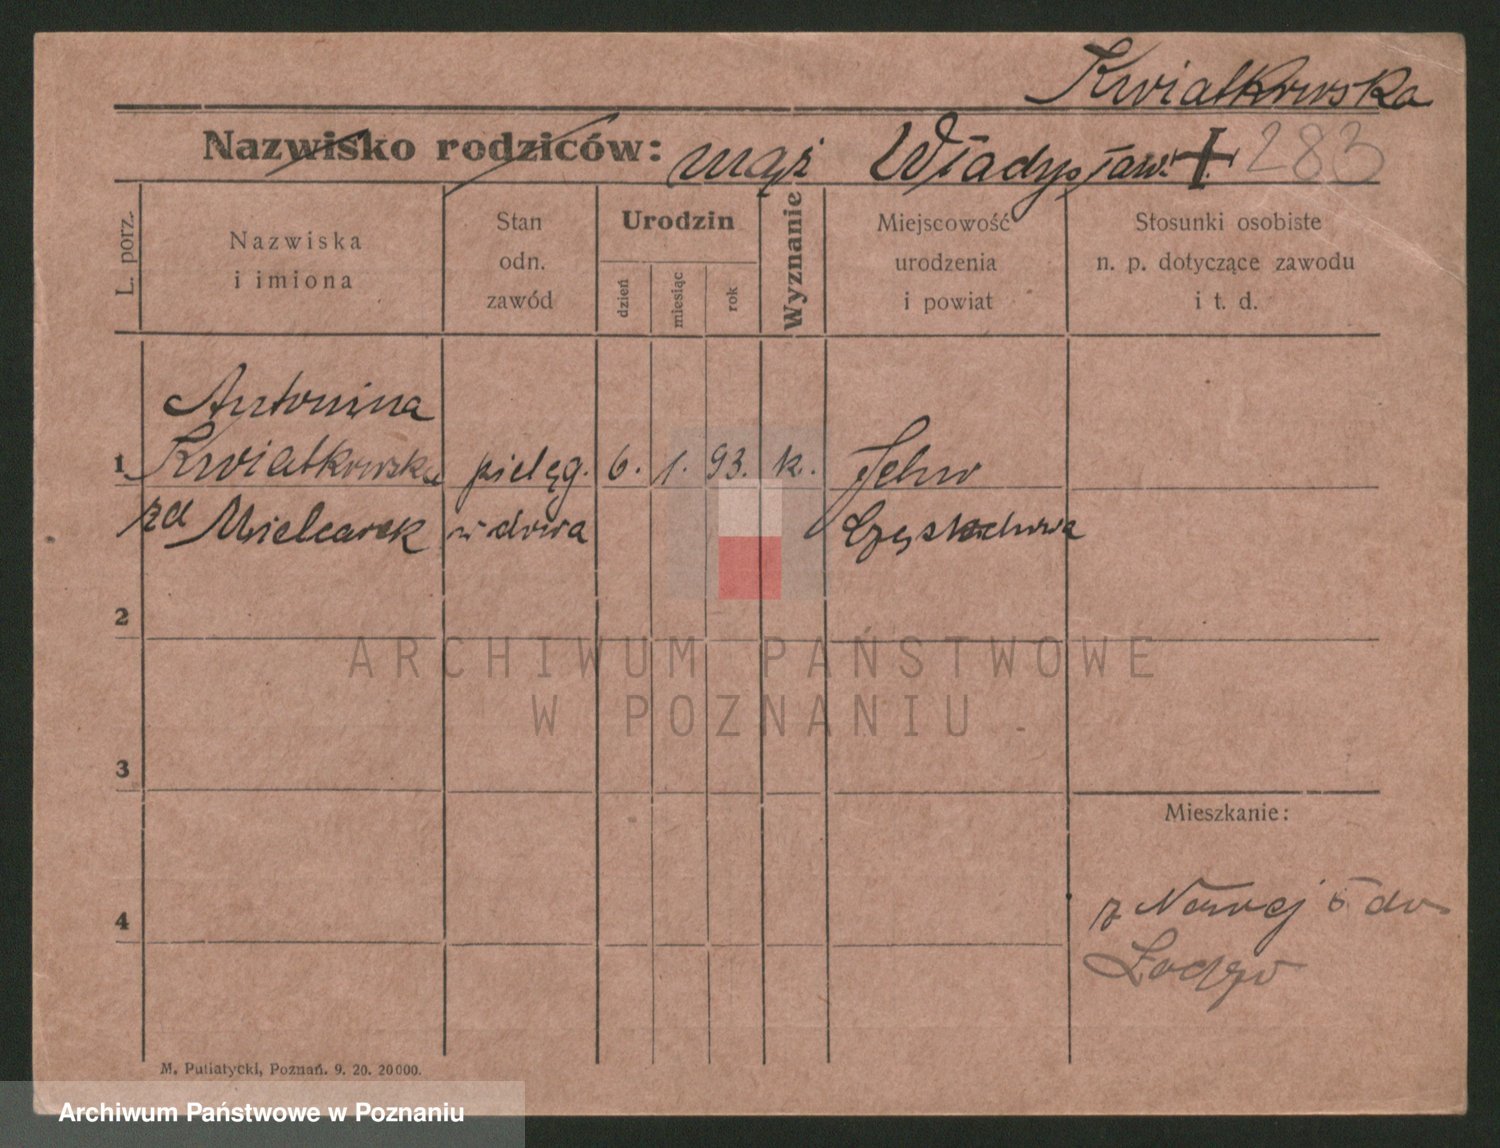 Kwiatkowska
Nazwisko rodziców: mąż Władysław. 283
L. porz.
Nazwiska
i imiona
Stan
odn.
zawód
Urodzin
dzień
miesiąc
rok
Wyznanie
Miejscowość
urodzenia
i powiat
Stosunki osobiste
n. p. dotyczące zawodu
i t. d.
Antonina
1 Kwiatkowska pielęg. 6. 1. 93. k.
zd Mielcarek wdowa Częstochowa
2
ARCHIWUM PAŃSTWOWE
W POZNANIU
3
Mieszkanie:
4
z Nowej 5 do
M. Putiatycki, Poznań. 9. 20. 20000.
Archiwum Państwowe w Poznaniu